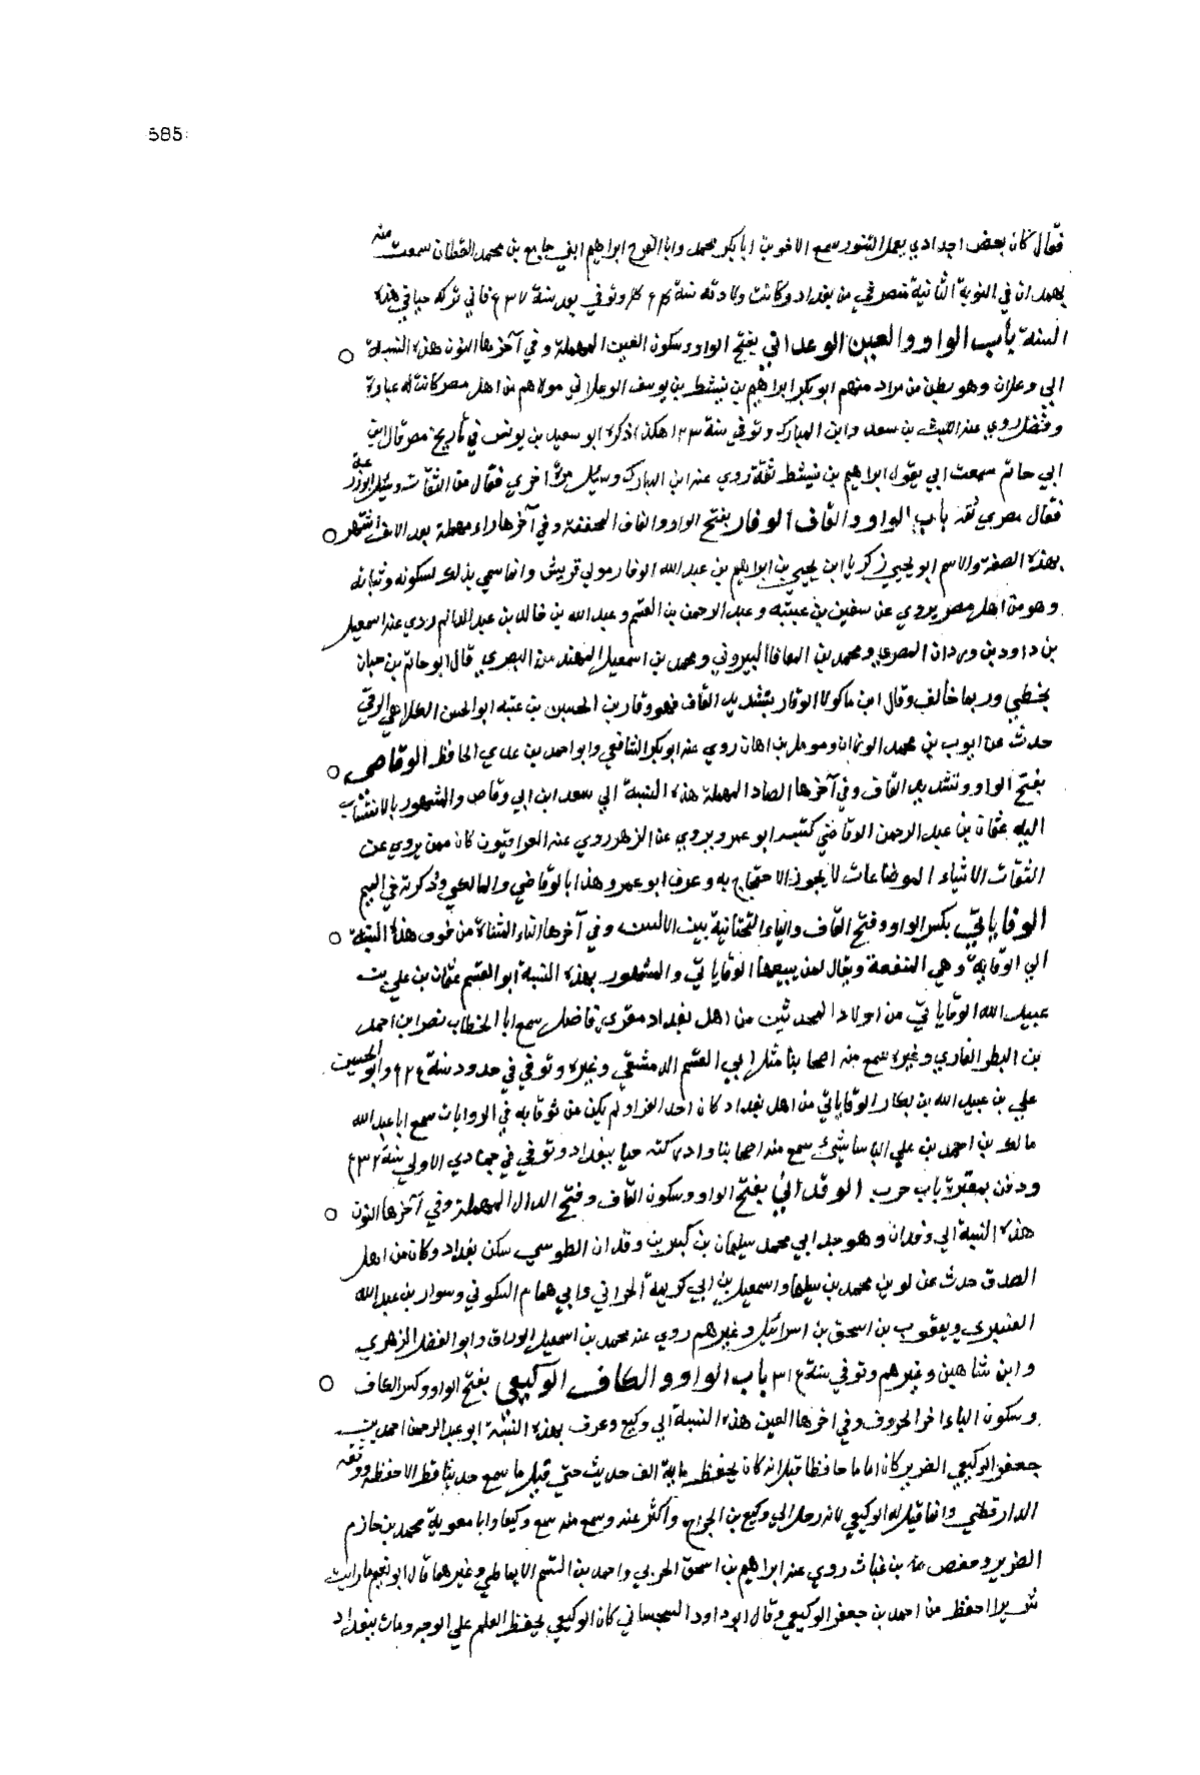 585
فقال كان بعض اجدادي يعمل التنور سمع الاخوين ابا بكر محمد وابا الفرج ابراهيم ابني جامع بن محمد القطان سمعت منه
بهمدان في النوبة الثانية منصرفي من بغداد وكانت ولادته سنة وتوفي بعد سنة فاني تركته حيا في هذه
السنة باب الواو والعين الوعلاني بفتح الواو وسكون العين المهملة وفي آخرها النون هذه النسبة
الي وعلان وهو بطن من مراد منهم ابو بكر ابراهيم بن نشيط بن يوسف الوعلاني مولاهم من اهل مصر كانت له عبادة
وفضل روي عنه الليث بن سعد وابن المبارك وتوفي سنة ١٦٣ هكذا ذكره ابو سعيد بن يونس في تاريخ مصر قال ابن
ابي حاتم سمعت ابي يقول ابراهيم بن نشيط ثقة روي عنه ابن المبارك وسئل مرة اخري فقال من الثقات وسئل ابو زرعة
فقال مصري ثقة باب الواو والقاف الوقار بفتح الواو والقاف المخففة وفي آخرها راء مهملة بعد الالف اشتهر
بهذه الصفة والاسم ابو يحيي زكريا ابن يحيي بن ابراهيم بن عبد الله الوقار مولي قريش وانما سمي بذلك لسكونه وثباته
وهو من اهل مصر يروي عن سفين بن عيينه وعبد الرحمن بن القسم وعبد الله بن خالد بن عبد الدائم روي عنه اسمعيل
بن داود بن وردان المصري ومحمد بن المعافا البيروتي ومحمد بن اسمعيل المهندس البصري قال ابو حاتم بن حبان
يخطي وربما خالف وقال ابن ماكولا الوقار بتشديد القاف فهو وقار بن الحسين بن عتبه ابو الحسن الكلابي الرقي
حدث عن ايوب بن محمد الوزان ومومل بن اهاب روي عنه ابو بكر الشافعي وابو احمد بن عدي الحافظ الوقاصي
بفتح الواو وتشديد القاف وفي آخرها الصاد المهملة هذه النسبة الي سعد ابن ابي وقاص والمشهور بالانتساب
اليه عثمان بن عبد الرحمن الوقاصي كنيته ابو عمرو يروي عن الزهر روي عنه العراقيون كان ممن يروي عن
الثقات الاشياء الموضوعات لا يجوز الاحتجاج به وعرف ابو عمرو هذا بالوقاصي والمالكي وذكرته في الميم
الوقاياتي بكسر الواو وفتح القاف والياء التحتانية بين الالفين وفي آخرها التاء المثناة من فوق هذه النسبة
الي الوقاية وهي المقنعة ويقال لمن يبيعها الوقاياتي والمشهور بهذه النسبة ابو القسم عثمان بن علي بن
عبيد الله الوقاياتي من اولاد المحدثين من اهل بغداد مقري فاضل سمع ابا الخطاب نصر ابن احمد
بن البطر القاري وغيره سمع منه اصحابنا مثل ابي القسم الدمشقي وغيره وتوفي في حدود سنة وابو الحسين
علي بن عبيد الله بن بكار الوقاياتي من اهل بغداد كان احد القراء لم يكن من ثوقا به في الروايات سمع ابا عبد الله
مالك بن احمد بن علي البانياسي سمع منه اصحابنا وادركته حيا ببغداد وتوفي في جمادي الاولي سنة
ودفن بمقبرة باب حرب الوقداني بفتح الواو وسكون القاف وفتح الدال المهملة وفي آخرها النون
هذه النسبة الي وقدان وهو جد ابي محمد سليمان بن كبير بن وقدان الطوسي سكن بغداد وكان من اهل
الصدق حدث عن لوين محمد بن سليمان واسمعيل بن ابي كريمة الحراني وابي همام السكوني وسوار بن عبد الله
العنبري ويعقوب بن اسحق بن اسرائيل وغيرهم روي عنه محمد بن اسمعيل الوراق وابو الفضل الزهري
وابن شاهين وغيرهم وتوفي سنة باب الواو والكاف الوكيعي بفتح الواو وكسر الكاف
وسكون الياء اخر الحروف وفي اخرها العين هذه النسبة الي وكيع وعرف بهذه النسبة ابو عبد الرحمن احمد بن
جعفر الوكيعي الضرير كان اماما حافظا قيل انه كان يحفظ ماية الف حديث حتي قيل ما سمع حديثا قط الا حفظه ووثقه
الدارقطني وانما قيل له الوكيعي لانه رحل الي وكيع بن الجراح واكثر عنه وسمع منه سمع وكيعا وابا معوية محمد بن خازم
الضرير وحفص بن غياث روي عنه ابراهيم بن اسحق الحربي واحمد بن القسم الانماطي وغيرهما قال ابو نعيم ما رايت
ضريرا احفظ من احمد بن جعفر الوكيعي وقال ابو داود السجستاني كان الوكيعي يحفظ العلم علي الوجه ومات ببغداد